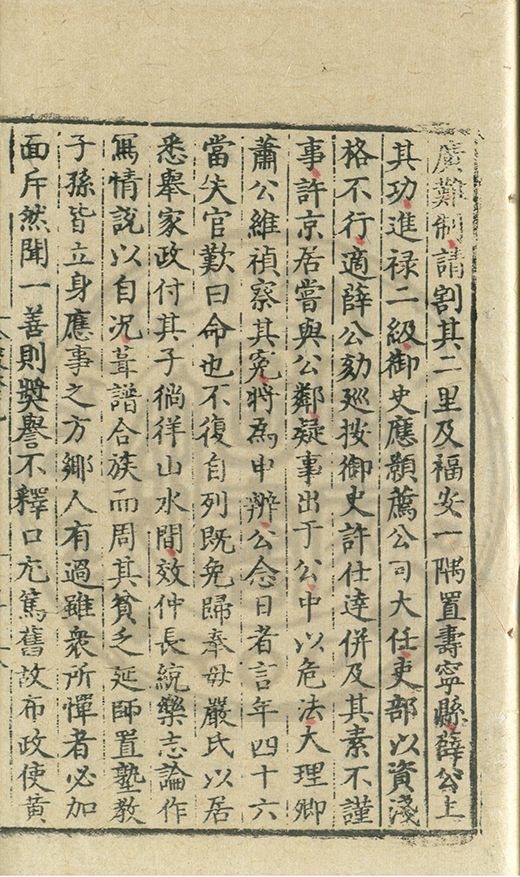 廣難制請割其二里及福安一隅置壽寧縣薛公上
其功進禄二級御史應顥薦公可大任吏部以資淺
格不行適薛公劾廵按御史許仕達併及其素不謹
事許京居嘗與公鄰疑事出于公中以危法大理卿
蕭公維禎察其寃將為申辨公念日者言年四十六
當失官歎曰命也不復自列既免歸奉母嚴氏以居
悉舉家政付其子徜徉山水間效仲長統樂志論作
寫情説以自况葺譜合族而周其貧乏延師置塾教
子孫皆立身應事之方鄉人有過雖衆所憚者必加
面斥然聞一善則奬譽不釋口尤篤舊故布政使黄